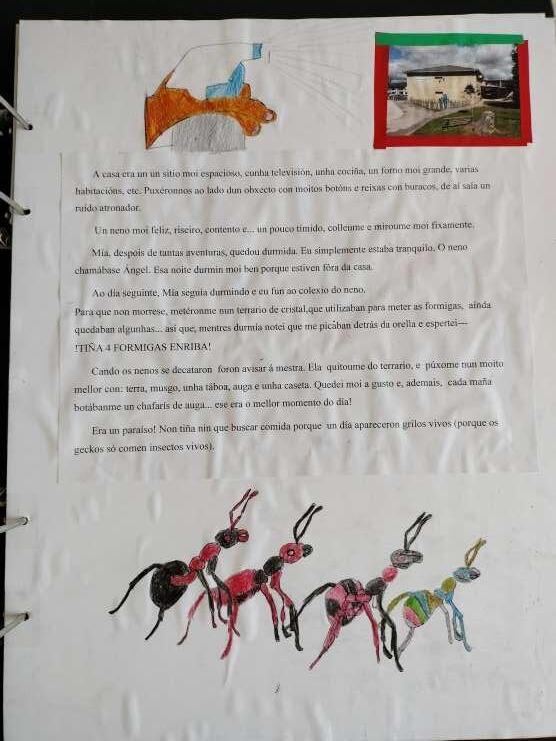 A casa era un un sitio moi espacioso, cunha televisión, unha cociña, un forno moi grande, varias
habitacións, etc. Puxéronnos ao lado dun obxecto con moitos botóns e reixas con buracos, de aí saía un
ruído atronador.
Un neno moi feliz, riseiro, contento e... un pouco tímido, colleume e miroume moi fixamente.
Mía, despois de tantas aventuras, quedou durmida. Eu simplemente estaba tranquilo. O neno
chamábase Ángel. Esa noite durmin moi ben porque estiven fóra da casa.
Ao día seguinte, Mía seguía durmindo e eu fun ao colexio do neno.
Para que non morrese, metéronme nun terrario de cristal,que utilizaban para meter as formigas, aínda
quedaban algunhas... así que, mentres durmía notei que me picaban detrás da orella e espertei---
!TIÑA 4 FORMIGAS ENRIBA!
Cando os nenos se decataron foron avisar á mestra. Ela quitoume do terrario, e púxome nun moito
mellor con: terra, musgo, unha táboa, auga e unha caseta. Quedei moi a gusto e, ademais, cada maña
botábanme un chafarís de auga... ese era o mellor momento do día!
Era un paraíso! Non tiña nin que buscar comida porque un día apareceron grilos vivos (porque os
geckos só comen insectos vivos).